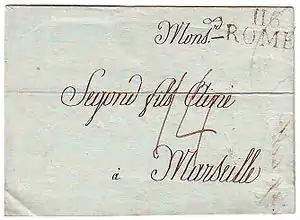 116
ROME
Monsr.
Segond fils
14
à
Marseille